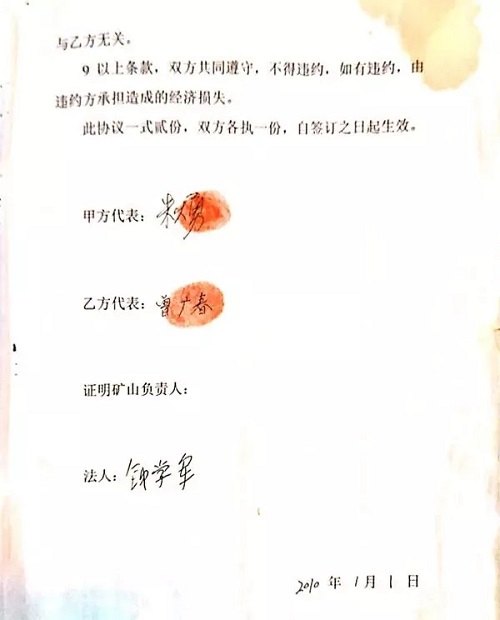 与乙方无关。
9 以上条款，双方共同遵守，不得违约，如有违约，由
违约方承担造成的经济损失。
此协议一式贰份，双方各执一份，自签订之日起生效。
甲方代表：朱 勇
乙方代表：曾广春
证明矿山负责人：
法人：钟学军
2010 年 1 月 1 日